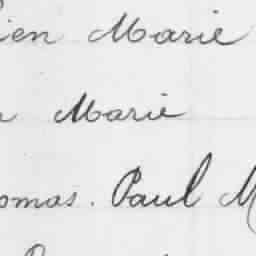 ien Marie
Marie
omas. Paul M